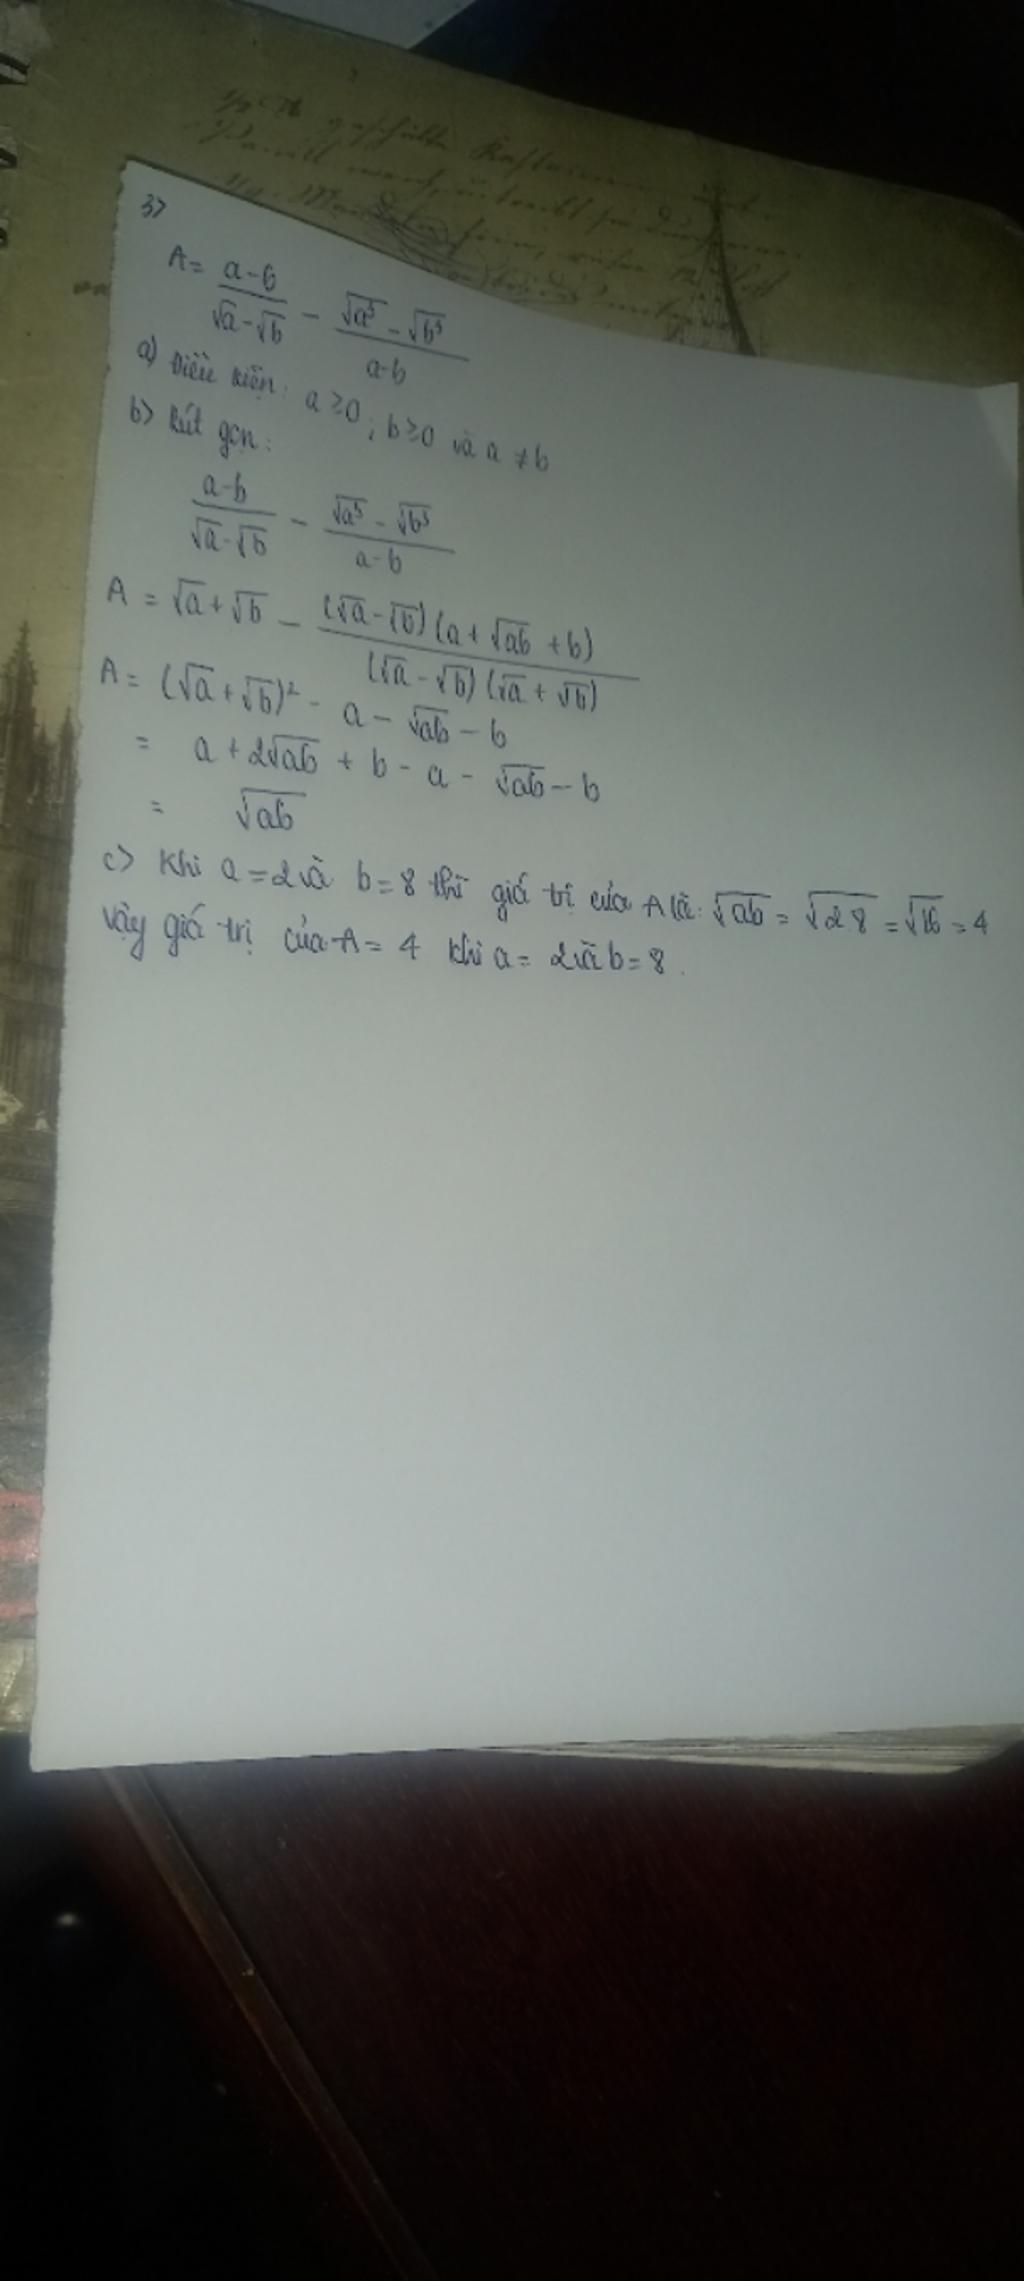 3>
A = a-b/√a-√b - √a³ - √b³/a-b
a) Điều kiện: a ≥ 0 ; b ≥ 0 và a ≠ b
b> Rút gọn:
a-b/√a-√b - √a³ - √b³/a-b
A = √a + √b - (√a-√b)(a+√ab+b)/(√a-√b)(√a+√b)
A = (√a+√b)² - a - √ab - b
= a + 2√ab + b - a - √ab - b
= √ab
c> Khi a = 2 và b = 8 thì giá trị của A là: √ab = √2 8 = √16 = 4
Vậy giá trị của A = 4 khi a = 2 và b = 8.